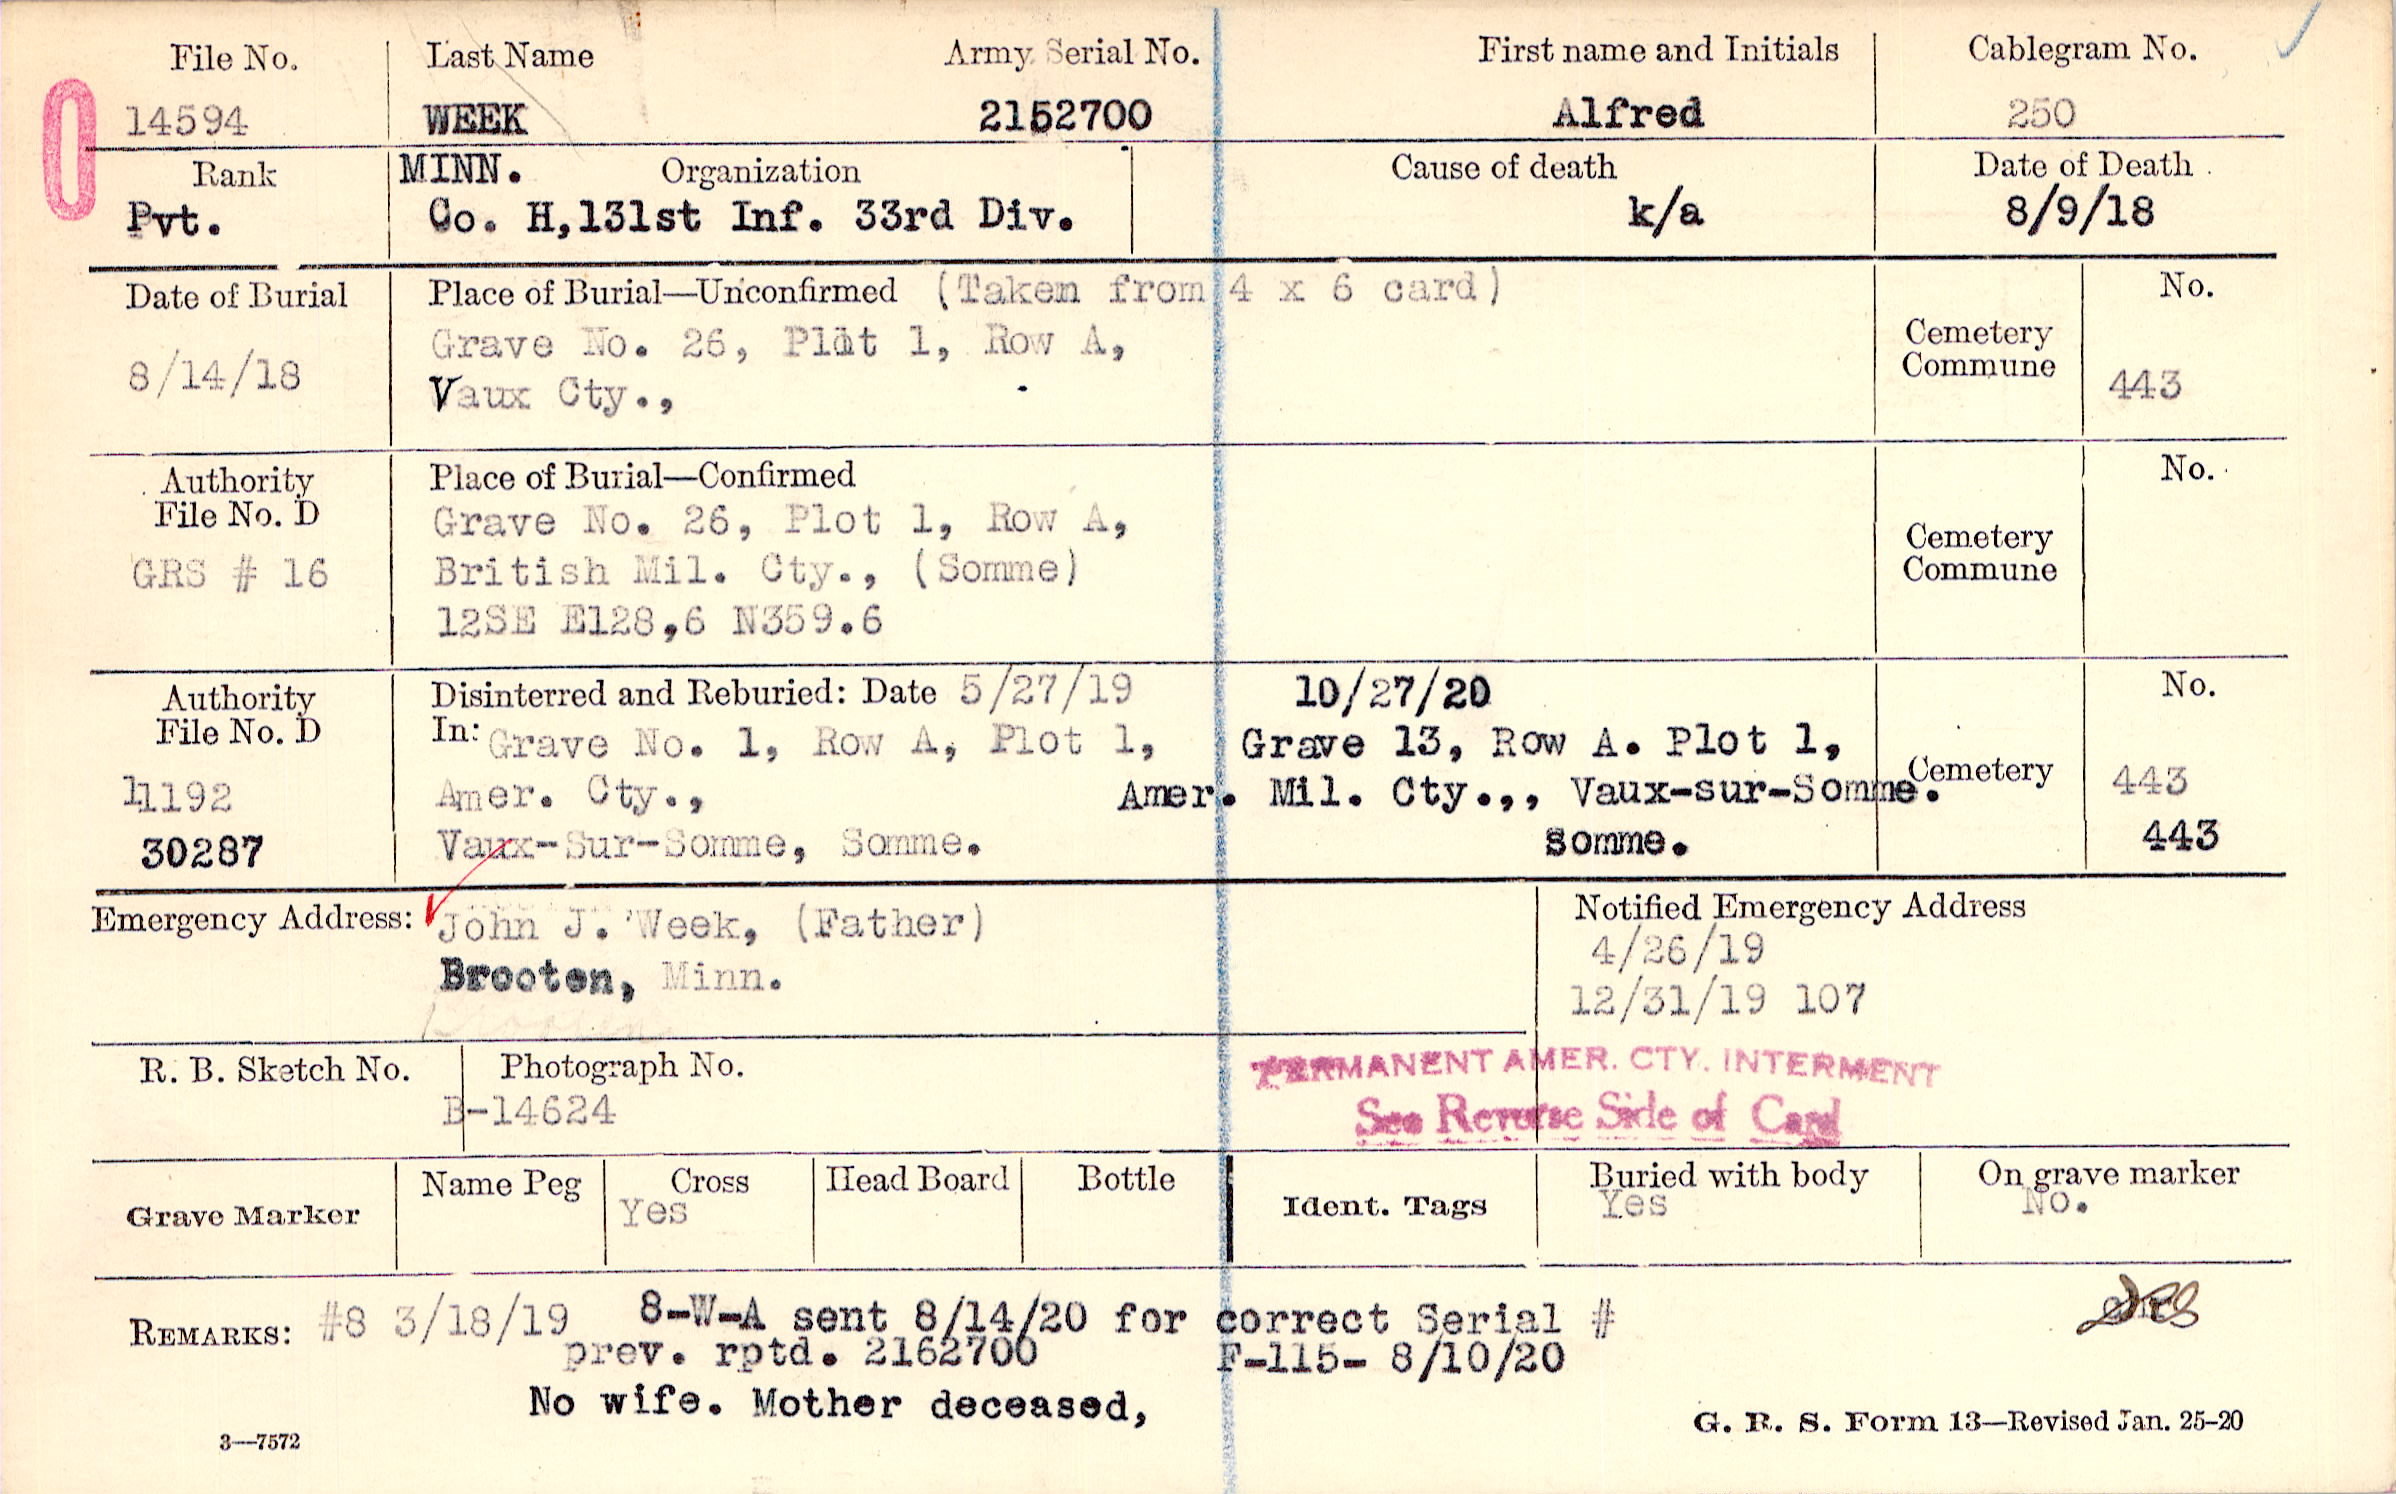 File No. Last Name Army Serial No. First name and Initials Cablegram No.
14594 WEEK 2152700 Alfred 250
Rank MINN. Organization Cause of death Date of Death
Pvt. Co. H,131st Inf. 33rd Div. k/a 8/9/18
Date of Burial Place of Burial—Unconfirmed (Taken from 4 x 6 card) No.
8/14/18 Grave No. 26, Plot 1, Row A, Cemetery
Vaux Cty., Commune 443
Authority Place of Burial—Confirmed No.
File No. D Grave No. 26, Plot 1, Row A, Cemetery
GRS # 16 British Mil. Cty., (Somme) Commune
12SE E128,6 N359.6
Authority Disinterred and Reburied: Date 5/27/19 10/27/20 No.
File No. D In: Grave No. 1, Row A, Plot 1, Grave 13, Row A. Plot 1,
11192 Amer. Cty., Amer. Mil. Cty.,, Vaux-sur-Somme. Cemetery 443
30287 Vaux-Sur-Somme, Somme. Somme. 443
Emergency Address: John J. Week, (Father) Notified Emergency Address
Brooten, Minn. 4/26/19
12/31/19 107
R. B. Sketch No. Photograph No. PERMANENT AMER. CTY. INTERMENT
B-14624 See Reverse Side of Card
Grave Marker Name Peg Cross Head Board Bottle Ident. Tags Buried with body On grave marker
Yes Yes No.
REMARKS: #8 3/18/19 8-W-A sent 8/14/20 for correct Serial #
prev. rptd. 2162700 F-115- 8/10/20
No wife. Mother deceased,
3—7572 G. R. S. Form 13—Revised Jan. 25-20
0